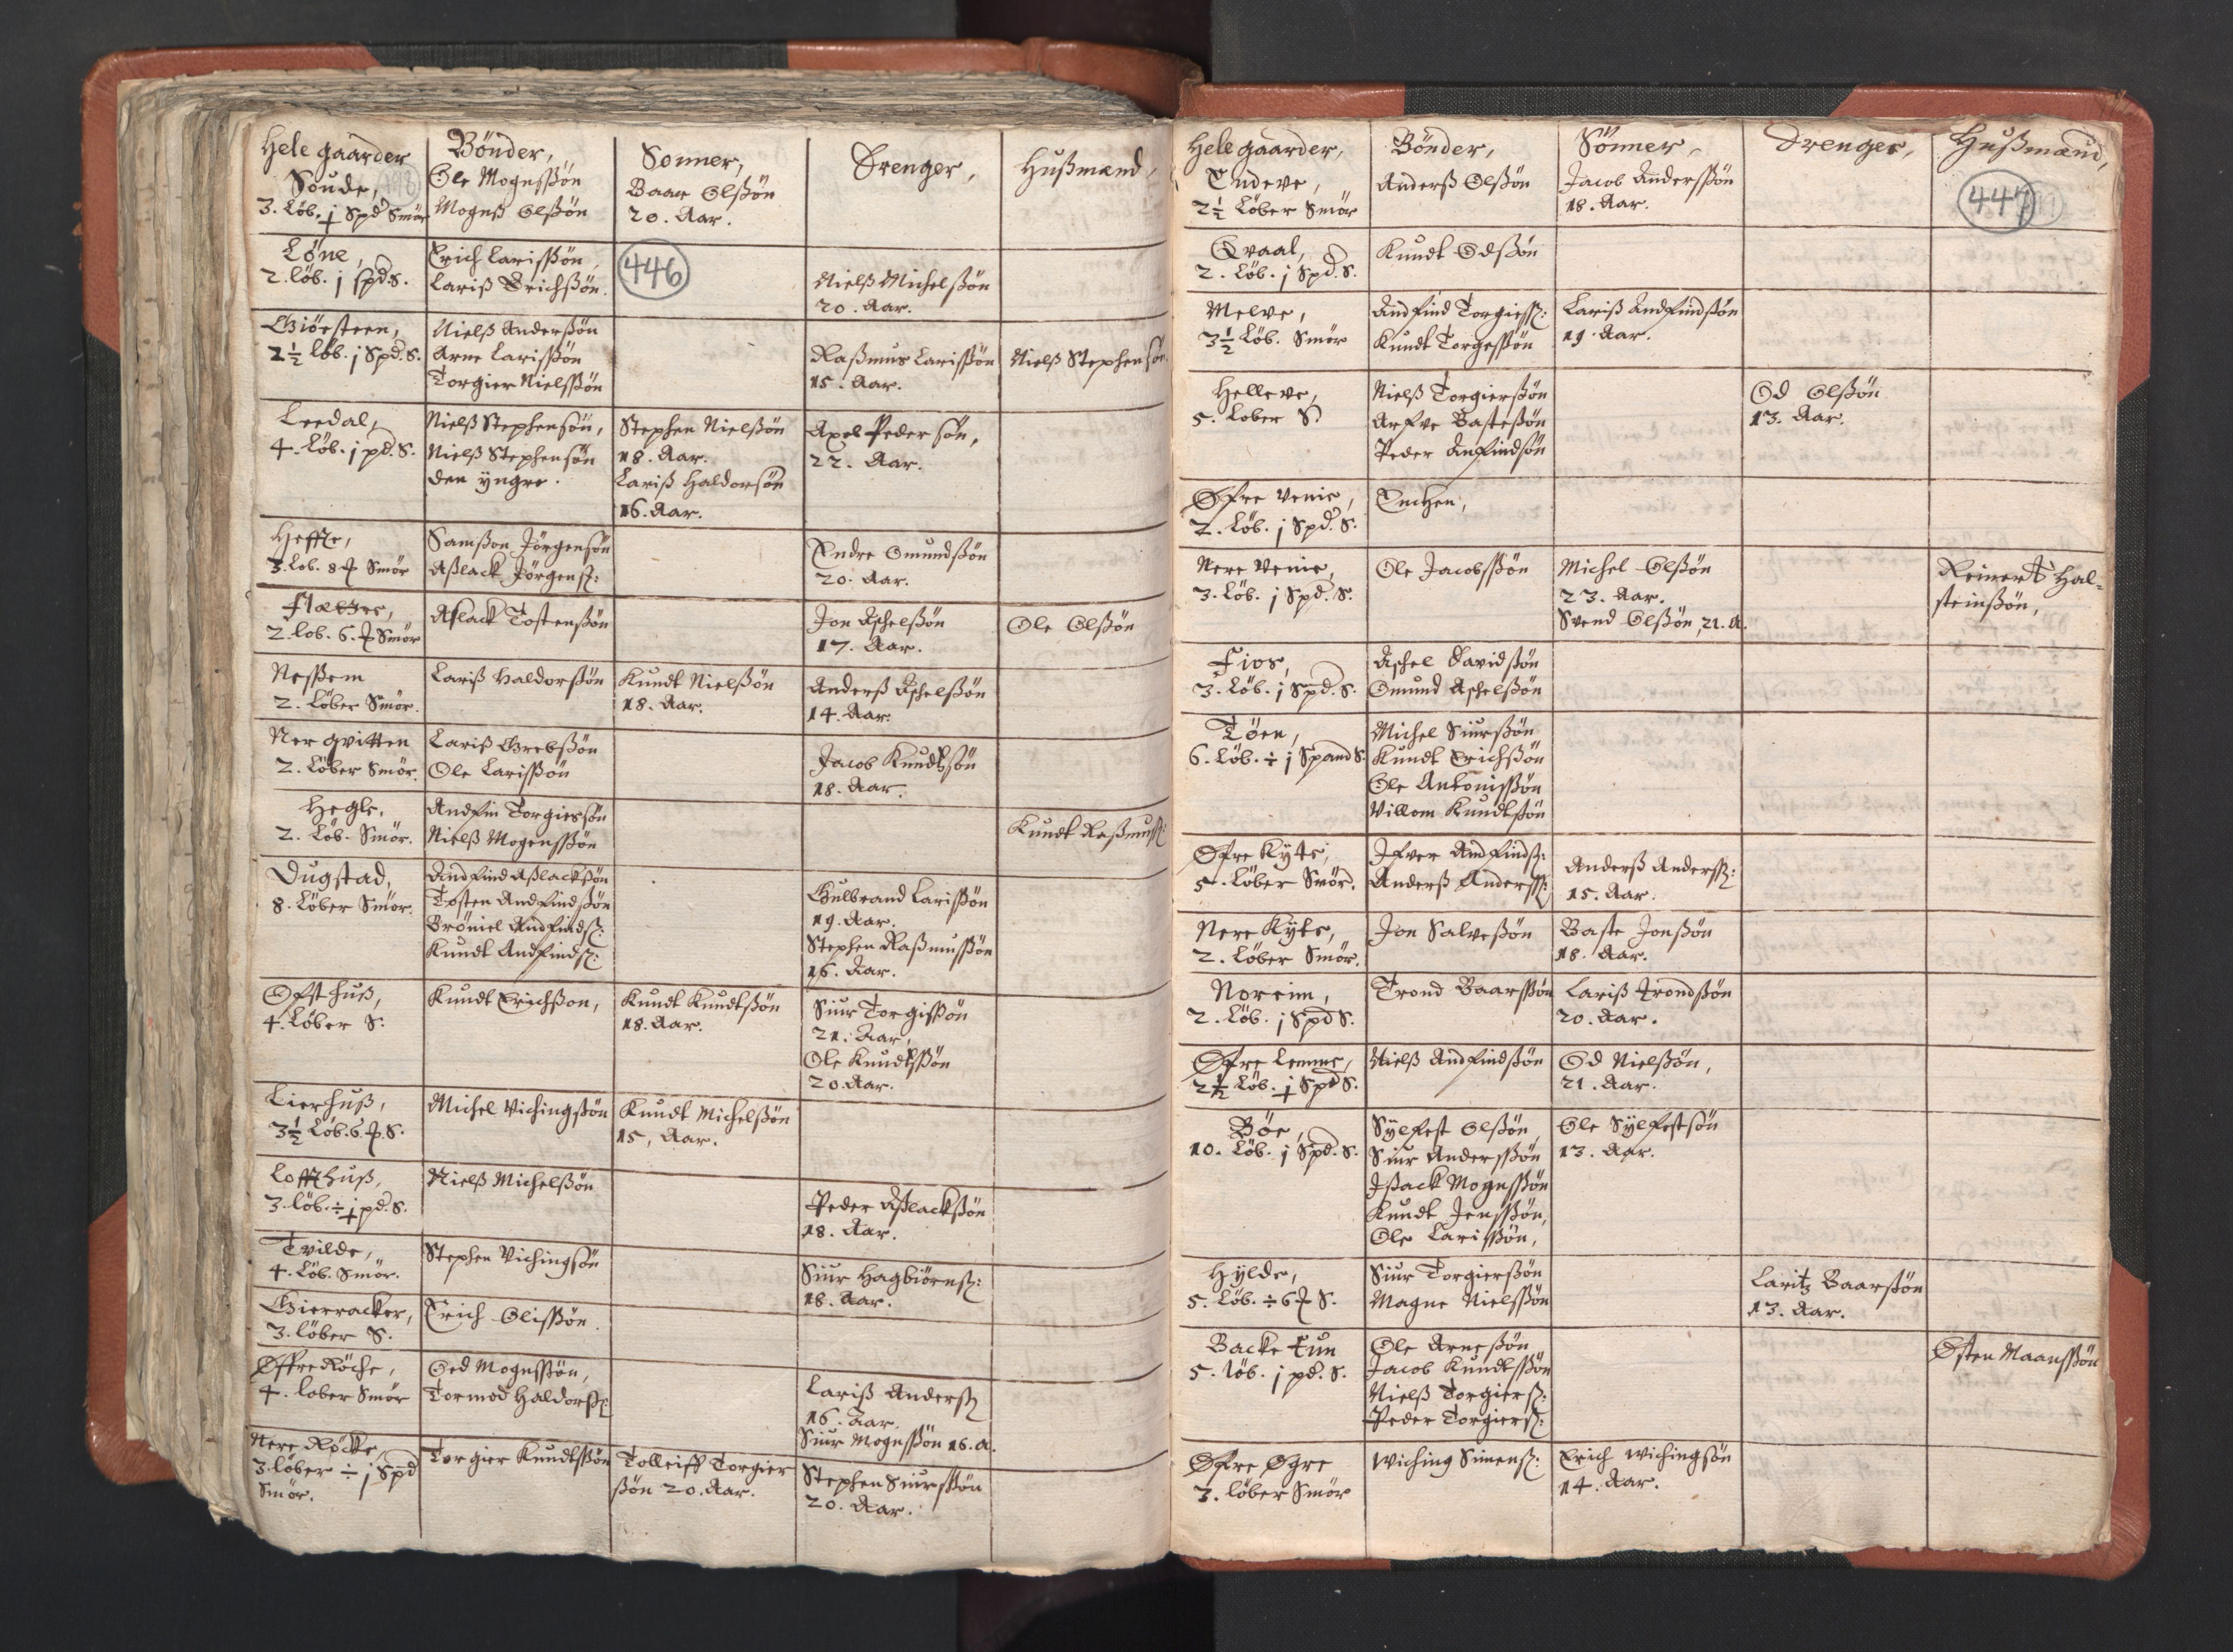 Hele gaarder
Bönder,
Sonner,
Drenger,
Hußmænd,
Soude,
3. Löb. j Spd Smör
Ole Mogenßön
Mogenß Olßön
Baar Olßön
20. Aar.
446
Löne,
2. löb. j spd. S.
Erich Larißön,
Lariß Erichßön.
Nielß Michelßön
20. Aar.
Giörsteen,
2½ löb. j Spd. S.
Nielß Anderßön
Arne Larißön
Torgier Nielßön
Raßmus Larißön
15. Aar.
Nielß Stephensön.
Leedal,
4. Löb. j pd. S.
Nielß Stephensön,
Nielß Stephensön
den yngre.
Stephen Nielßön
18. Aar.
Lariß Haldorßön
16. Aar.
Axel Pedersön,
22. Aar.
Heffte,
3. Löb. 8 ℔ Smör
Samßon Jörgensön
Aßlack Jörgens:
Endre Omundßön
20. Aar.
Flatger,
2. löb. 6. ℔ Smör
Aslack Tostenßön
Jon Aschelßön
17. Aar.
Ole Olßön
Neßem
2. Löber Smör.
Lariß Haldorßön
Knudt Nielßön
18. Aar.
Anderß Aschelßön
14. Aar.
Ner qvitten
2. Löber Smör.
Lariß Grebßön
Ole Larißön
Jacob Knudtßön
18. Aar.
Hegle,
2. Löb. Smör.
Andfin Torgiersön
Nielß Mogenßön
Knudt Raßmuß:
Dugstad,
8. Löber Smör.
Andfind Aßlackßön
Tosten Andfindßön
Bröniel Andfindß:
Knudt Andfindß:
Gulbrand Larißön
19. Aar.
Stephen Raßmußön
16. Aar.
Ofsthuß,
4. Löber S.
Knudt Erichßon,
Knudt Knudtßön
18. Aar.
Siur Torgißön
21. Aar,
Ole Knudtßön
20. Aar.
Lierhuß,
3½ Löb. 6 ℔. S.
Michel Vichingßön
Knudt Michelßön
15, Aar.
Loffthuß,
3. löb. ÷ j pd. S.
Nielß Michelßön
Peder Aßlackßön
18. Aar.
Tvilde,
4. Löb. Smör.
Stephen Vichingsön
Siur Hagbiörnß:
18. Aar.
Gierracker,
3. löber S.
Erich Olißön.
Øffre Röche,
4. lober Smör
Oed Mogenßön,
Tormod Haldorß:
Lariß Anderß
16. Aar.
Siur Mogenßön 16. A.
Nere Röcke
3. löber ÷ j Spd
Smör.
Torgier Knudtßön
Tolleiff Torgier
ßön 20. Aar.
Stephen Siurßön
20. Aar.
Hele gaarder,
Bönder,
Sönner,
Drenger,
Hußmænd,
Endeve,
2½ Löber Smör
Anderß Olßön
Jacob Anderßön
18. Aar.
447
Qvaal,
2. Löb. j Spd. S.
Knudt Odßön
Melve,
3½ Löb. Smör
Andfind Torgierß:
Knudt Torgeßön
Lariß Andfindßön
19. Aar.
Helleve,
5. Lober S
Nielß Torgierßön
Arfve Basteßön
Peder Anfindßön
Od Olßön
13. Aar.
Øfre Venie,
2. Löb. j Spd. S.
Enchen,
Nere Venie,
3. Löb. j Spd. S.
Ole Jacobßön
Michel Olßön
23. Aar.
Svend Olßön, 21. A.
Reinert Hal-
steinßön,
Fios,
3. Löb. j Spd. S.
Aschel Davidßön
Omund Aschelßön
Töen,
6. Löb. ÷ j Spand S.
Michel Siurßön
Knudt Erichßön
Ole Antonißön
Villom Knudtßön
Øfre Kyte,
5. Löber Smör.
Ifver Andfindß:
Anderß Anderß:
Anderß Anderß:
15. Aar.
Nere Kyte,
2. Löber Smör.
Jon Salveßön
Baste Jonßön
18. Aar.
Noreim,
2. Löb. j Spd S.
Trond Baarßön
Lariß Trondßön
20. Aar.
Øfre Lemme,
2½ Löb. j Spd S.
Nielß Andfindßön
Od Nielßön,
21. Aar.
Böe,
10. Löb. j Spd. S.
Sylfest Olßön
Siur Anderßön
Ißack Mogenßön
Knudt Jenßön,
Ole Larißön,
Ole Sylfestsön
13. Aar.
Hylde,
5. Löb. ÷ 6 ℔ S.
Siur Torgierßön
Magne Nielßön
Laritz Baarßön
13. Aar.
Backe tun
5. löb. j pd. S.
Ole Arneßön
Jacob Knudtßön
Nielß Torgierß:
Peder Torgierß:
Østen Maanßön
Øfre Øgre
3. löber Smör
Wiching Simenß:
Erich Wichingsön
14. Aar.